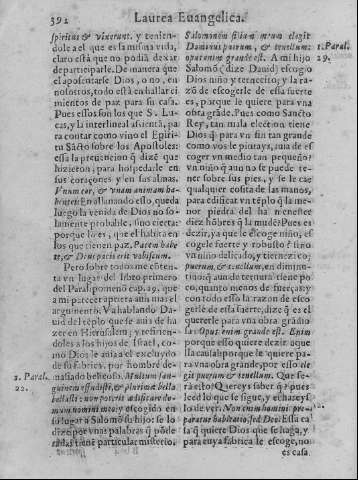 392 Laurea Euangelica.
spiritus & vixerunt. y tenien-
dole a el que es la misma vida,
claro està que no podia dexar
de participarle. De manera que
el aposentarse Dios, o no, en
nosotros, todo està en hallar ci
mientos de paz para su casa.
Pues essos son los que S. Lu-
cas, y la interlineal assienta, pa
ra contar como vino el Espiri-
tu Sãcto sobre los Apostoles:
essa la preuencion q̃ dize que
hizieron, para hospedarle en
sus coraçones y en sus almas.
Vnum cor, & vnam animam ha-
bentes: En allanando esso, queda
luego la venida de Dios no so-
lamente probable, sino cierta:
porque lo es, que el habita en
los que tienen paz, Pacem habe
te, & Deus pacis erit vobiscum.
Pero sobre todo me conten-
ta vn lugar del libro primero
del Paralipomenõ cap. 29. que
a mi parecer aprieta aun mas el
argumento. Va hablando Da-
uid del tẽplo que se auia de ha-
zer en Hierusalem; y refirien-
dole a los hijos de Israel, co-
mo Dios le auia a el excluydo
de su fabrica, por hombre de-
masiado belicoso. Multum san-
guinem effudisti, & plurima bella
bellasti: non poteris ædificare do-
mum nomini meo: y escogido en
su lugar a Salomõ su hijo: se lo
dize por vnas palabras q̃ põde
radas tiene particular misterio.
1. Paral.
22.
Salomonem filium meum elegit
Dominus puerum, & tenellum:
opus enim grande est. A mi hijo
Salomõ (dize Dauid) escogio
Dios niño y ternecito; y la ra-
zõ de escogerle de essa suerte
es, porque le quiere para vna
obra grãde. Pues como Sancto
Rey, tan mala electiõn tiene
Dios q̃ para vn fin tan grande
como vos le pintays, auia de es
coger vn medio tan pequeño?
vn niño q̃ aun no se puede te-
ner sobre sus pies, y se le cae
qualquier cosita de las manos,
para edificar vn tẽplo q̃ la me-
nor piedra del ha menester
diez hõbres q̃ la mudẽ? Pues es
dezir, ya que le escoge niño; es
cogele fuerte y robusto? sino
vn niño delicado, y ternezico;
puerum, & tenellum, en diminu-
tino q̃ aun da ternura? tiene po
co, quanto menos de fuerças: y
con todo esso la razon de esco
gerle de essa suerte, dize q̃ es el
quererle para vna obra grãdio
sa: Opus enim grande est. Enim
porque esso quiere dezir aque
lla causal: porque le quiere pa-
ra vna obra grande, por esso ele
git puerum & tenellum. Que se-
ra esto? Quereys saber q̃? pues
lo de ver. Non enim homini præ-
paratur habitatio, sed Deo: Essa ca
sa q̃ quiere Dios que se haga, y
para cuya fabrica le escoge, no
1. Paral.
29.
es casa